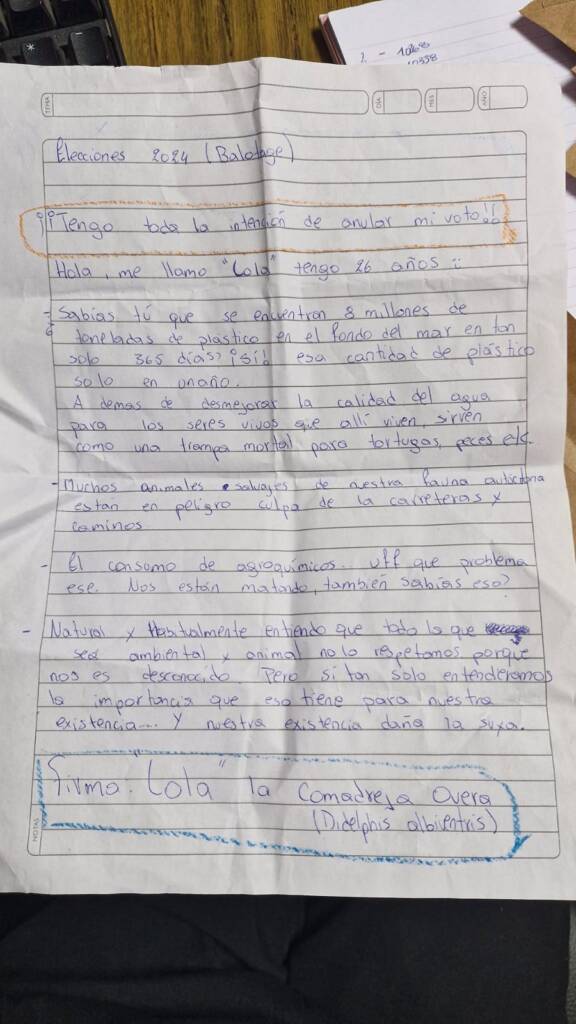 *
-
1. - 1068
10338
TEMA
DIA
MES
AÑO
Elecciones 2024 (Balotage)
¡¡Tengo toda la intención de anular mi voto!!
Hola, me llamo "Lola" tengo 26 años
- Sabías tú que se encuentran 8 millones de
toneladas de plástico en el fondo del mar en tan
solo 365 días? ¡Sí! esa cantidad de plástico
solo en un año.
A demas de desmejorar la calidad del agua
para los seres vivos que allí viven, sirven
como una trampa mortal para tortugas, peces etc.
- Muchos animales salvajes de nuestra fauna autóctona
estan en peligro culpa de la carreteras y
caminos
- El consumo de agroquímicos. Uff que problema
ese. Nos están matando, también sabías eso?
- Natural y Habitualmente entiendo que todo lo que
sea ambiental y animal no lo respetamos porque
nos es desconocido. Pero si tan solo entenderamos
la importancia que eso tiene para nuestra
existencia... Y nuestra existencia daña la suya.
Firma. "Lola" la Comadreja Overa
(Didelphis albiventris)
NOTAS